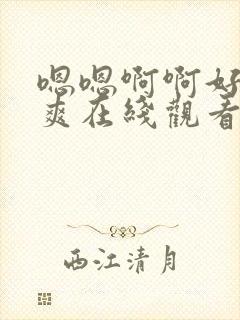 嗯嗯啊啊好
爽在綫觀看
西江清月